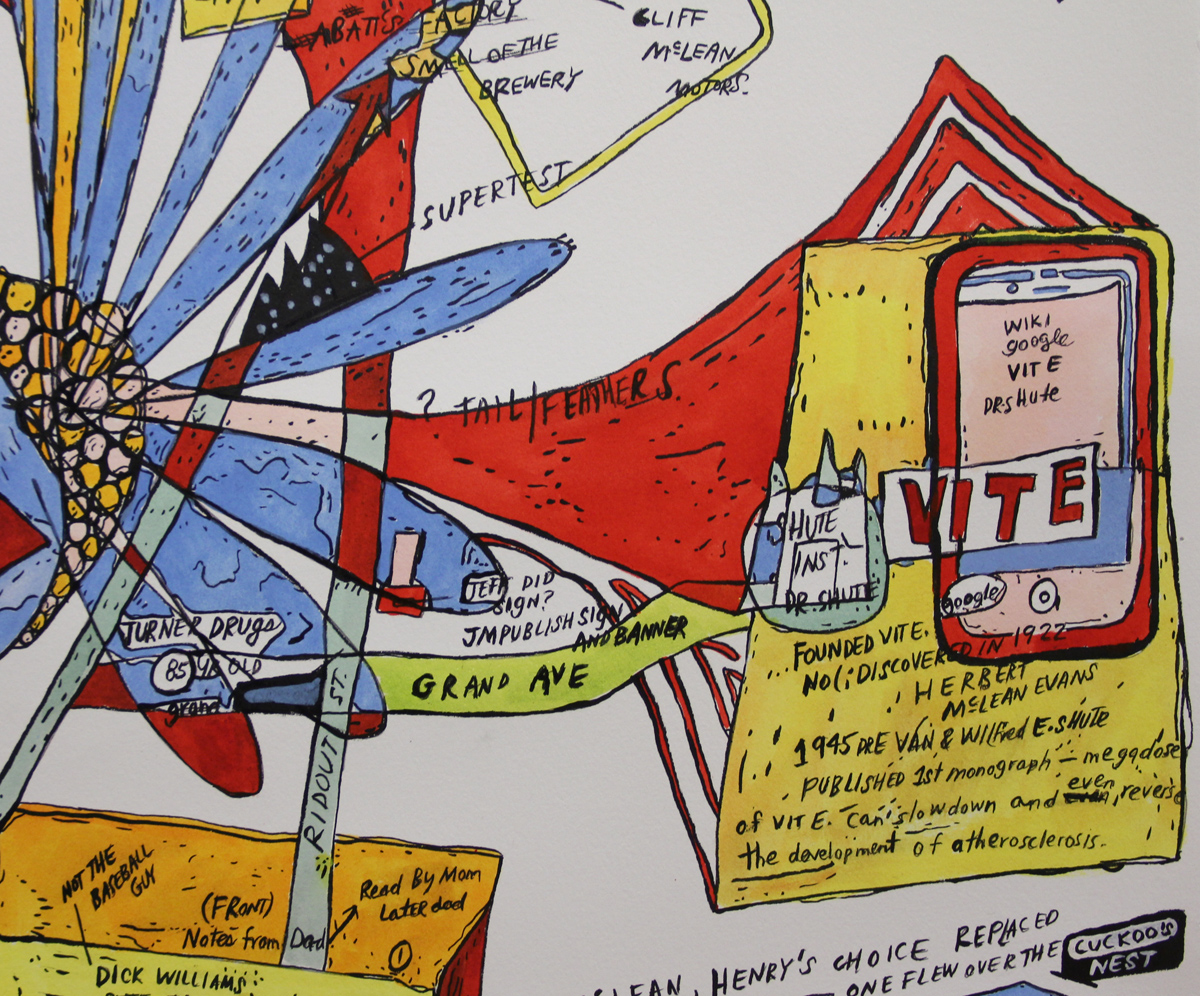 LABATT'S FACTORY
SMELL OF THE
BREWERY
CLIFF
McLEAN
MOTORS.
SUPERTEST
? TAIL/FEATHERS
WIKI
google
VIT E
DR.SHUTE
VITE
google
SHUTE
INST.
DR. SHUTE
JEFF DID
SIGN?
JM PUBLISH SIGN
AND BANNER
TURNER DRUGS
85 YRS OLD
grand
GRAND AVE
RIDOUT ST.
FOUNDED VITE.
NO(; DISCOVERED IN 1922
HERBERT
McLEAN EVANS
1945 DR E VAN & Wilfred E. SHUTE
PUBLISHED 1st monograph - megadose
of VIT E. Can slow down and even reverse
the development of atherosclerosis.
NOT THE
BASEBALL
GUY
(FRONT)
Notes from Dad
Read By Mom
LATER dad
1
DICK WILLIAMS:
CLEAN, HENRY'S CHOICE REPLACED
ONE FLEW OVER THE CUCKOO'S
NEST